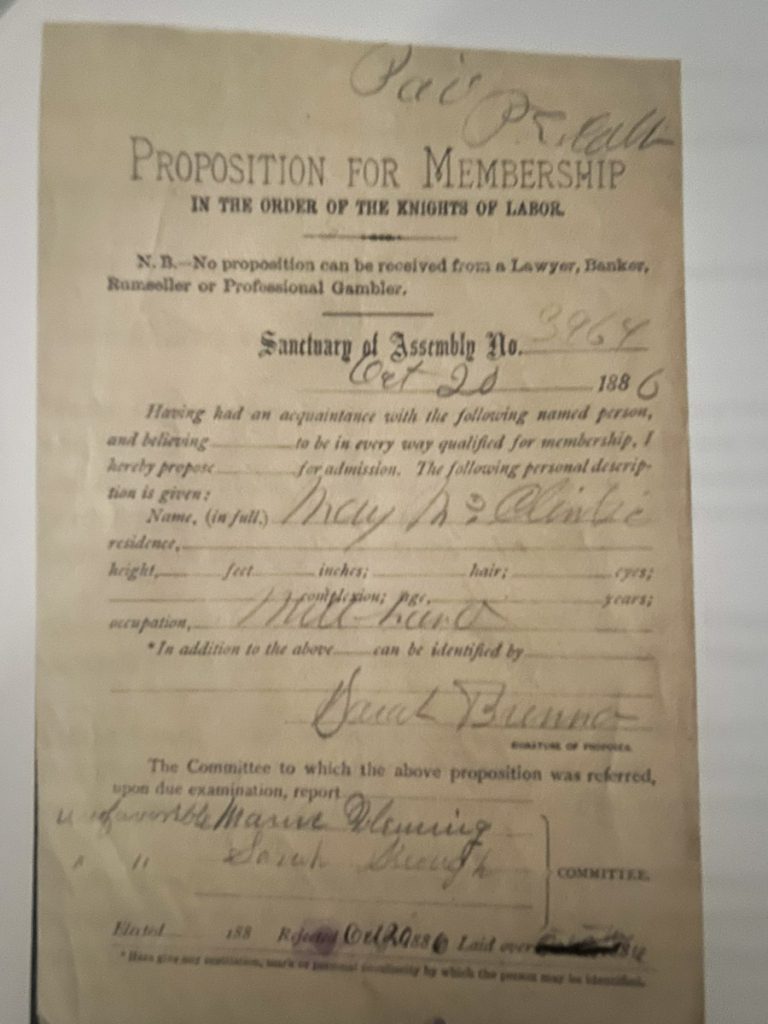 Paid
PROPOSITION FOR MEMBERSHIP
IN THE ORDER OF THE KNIGHTS OF LABOR.
N. B.—No proposition can be received from a Lawyer, Banker,
Rumseller or Professional Gambler.
Sanctuary of Assembly No. 3964
Oct 20 1886
Having had an acquaintance with the following named person,
and believing to be in every way qualified for membership, I
hereby propose for admission. The following personal descrip-
tion is given:
Name, (in full.) May Mc Clintic
residence,
height, feet inches; hair; eyes;
complexion; age, years;
occupation, Mill hand
*In addition to the above can be identified by
Sarah
SIGNATURE OF PROPOSER.
The Committee to which the above proposition was referred,
upon due examination, report
unfavorible Fleming
" " Sarah Keough
COMMITTEE.
Elected 188 Rejected Oct 20 1886 Laid over 188
* Here give any mark or personal peculiarity by which the person may be identified.